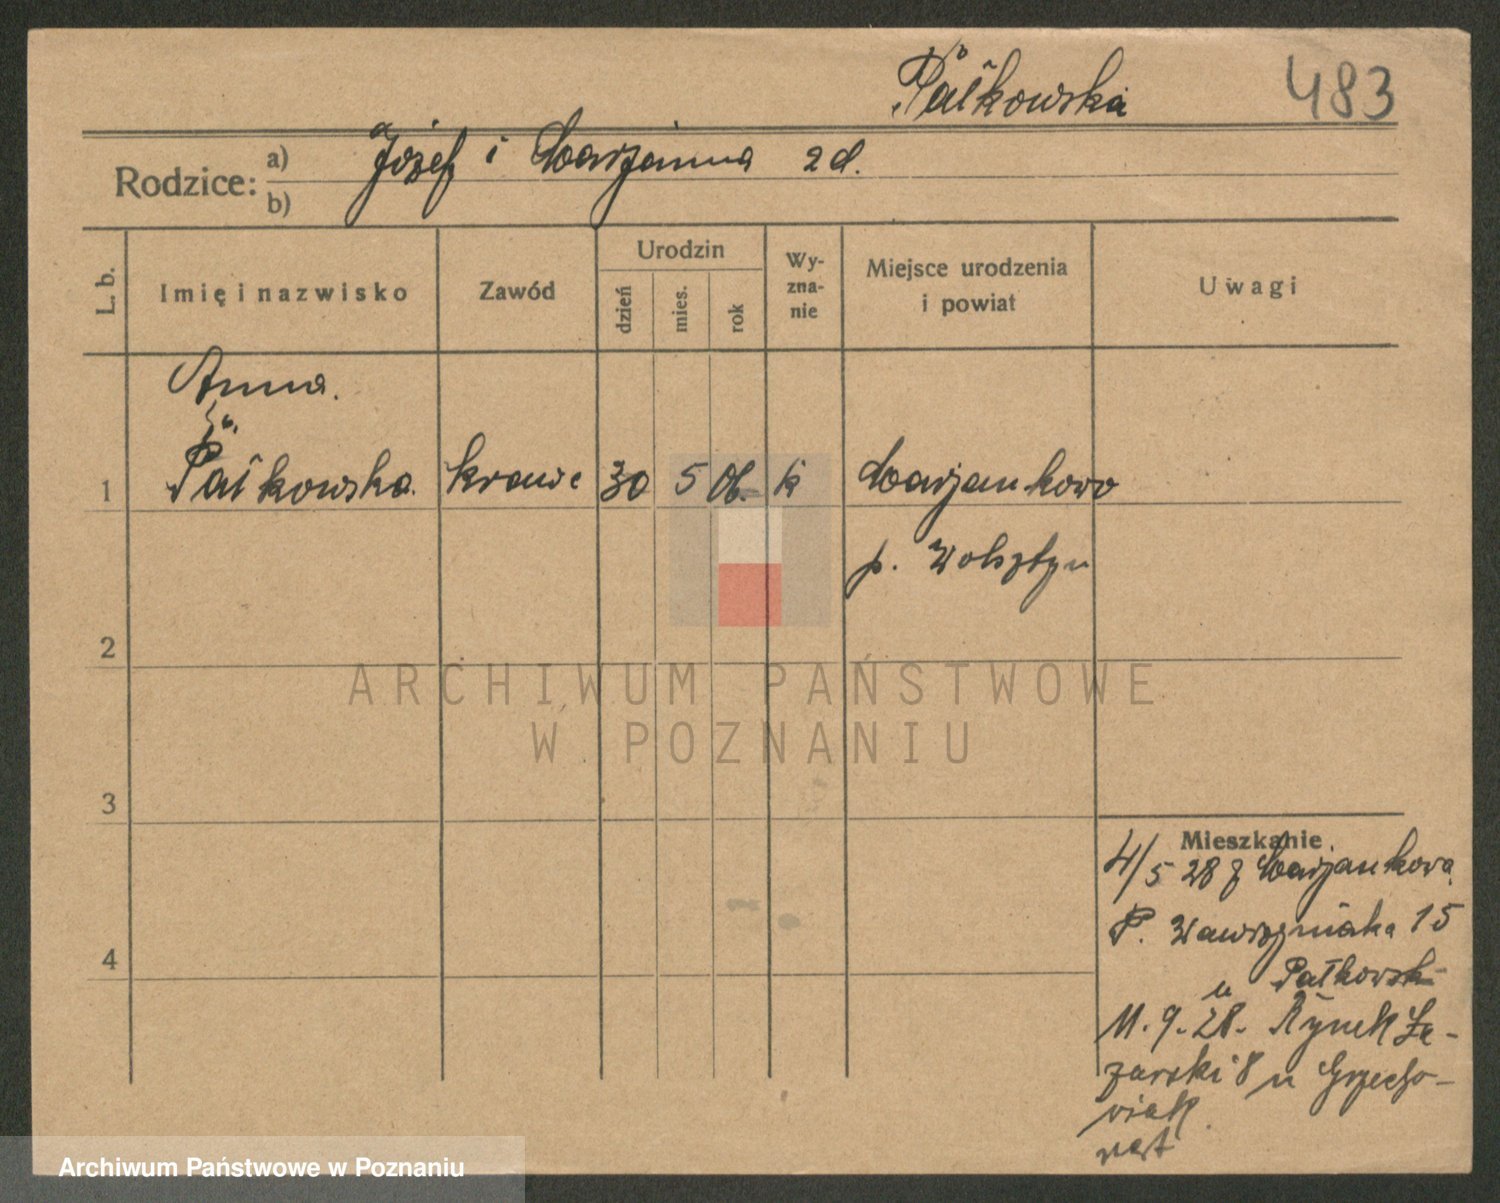 483
Pałkowska
Rodzice: a) Józef i Marjanna zd.
b)
L. b. Imię i nazwisko Zawód Urodzin dzień mies. rok Wy-zna-nie Miejsce urodzenia i powiat Uwagi
Anna
1 Pałkowska krawc 30 5 06. k Marjankowo
p. Wolsztyn
2
ARCHIWUM PAŃSTWOWE
W POZNANIU
3
Mieszkanie
4/5 28 z Marjankowa
P. Wawrzyniaka 15
4
u Pałkowsk
11. 9. 28. Rynek Ła-
zarski 8 u Grzecho-
wiak
Archiwum Państwowe w Poznaniu